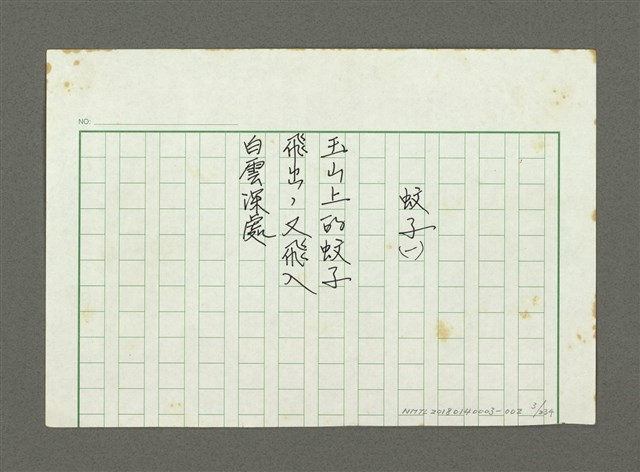 NO:
蚊子(一)
玉山上的蚊子
飛出，又飛入
白雲深處
NMTL20180140003-002 3/234